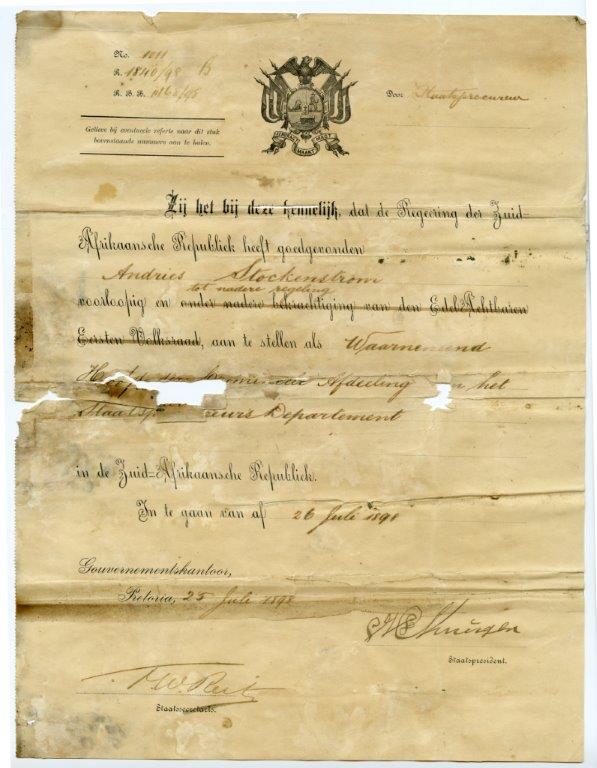 No. 1011
R. 1840/98 B
R. B. B. 1160/98
Door Staatsprocureur
Gelieve bij eventueele referte naar dit stuk
bovenstaande nummers aan te halen.
EENDRAGT MAAKT MAGT
Zij het bij deze kennelijk, dat de Regeering der Zuid-
Afrikaansche Republiek heeft goedgevonden
Andries Stockenstrom
tot nadere regeling
voorloopig en onder nadere bekrachtiging van den Edel Achtbaren
Eersten Volksraad, aan te stellen als Waarnemend
Afdeeling het
Departement
in de Zuid-Afrikaansche Republiek.
In te gaan van af 26 Juli 1898
Gouvernementskantoor,
Pretoria, 25 Juli 1898
Staatspresident.
F. W. Reitz
Staatssecretaris.